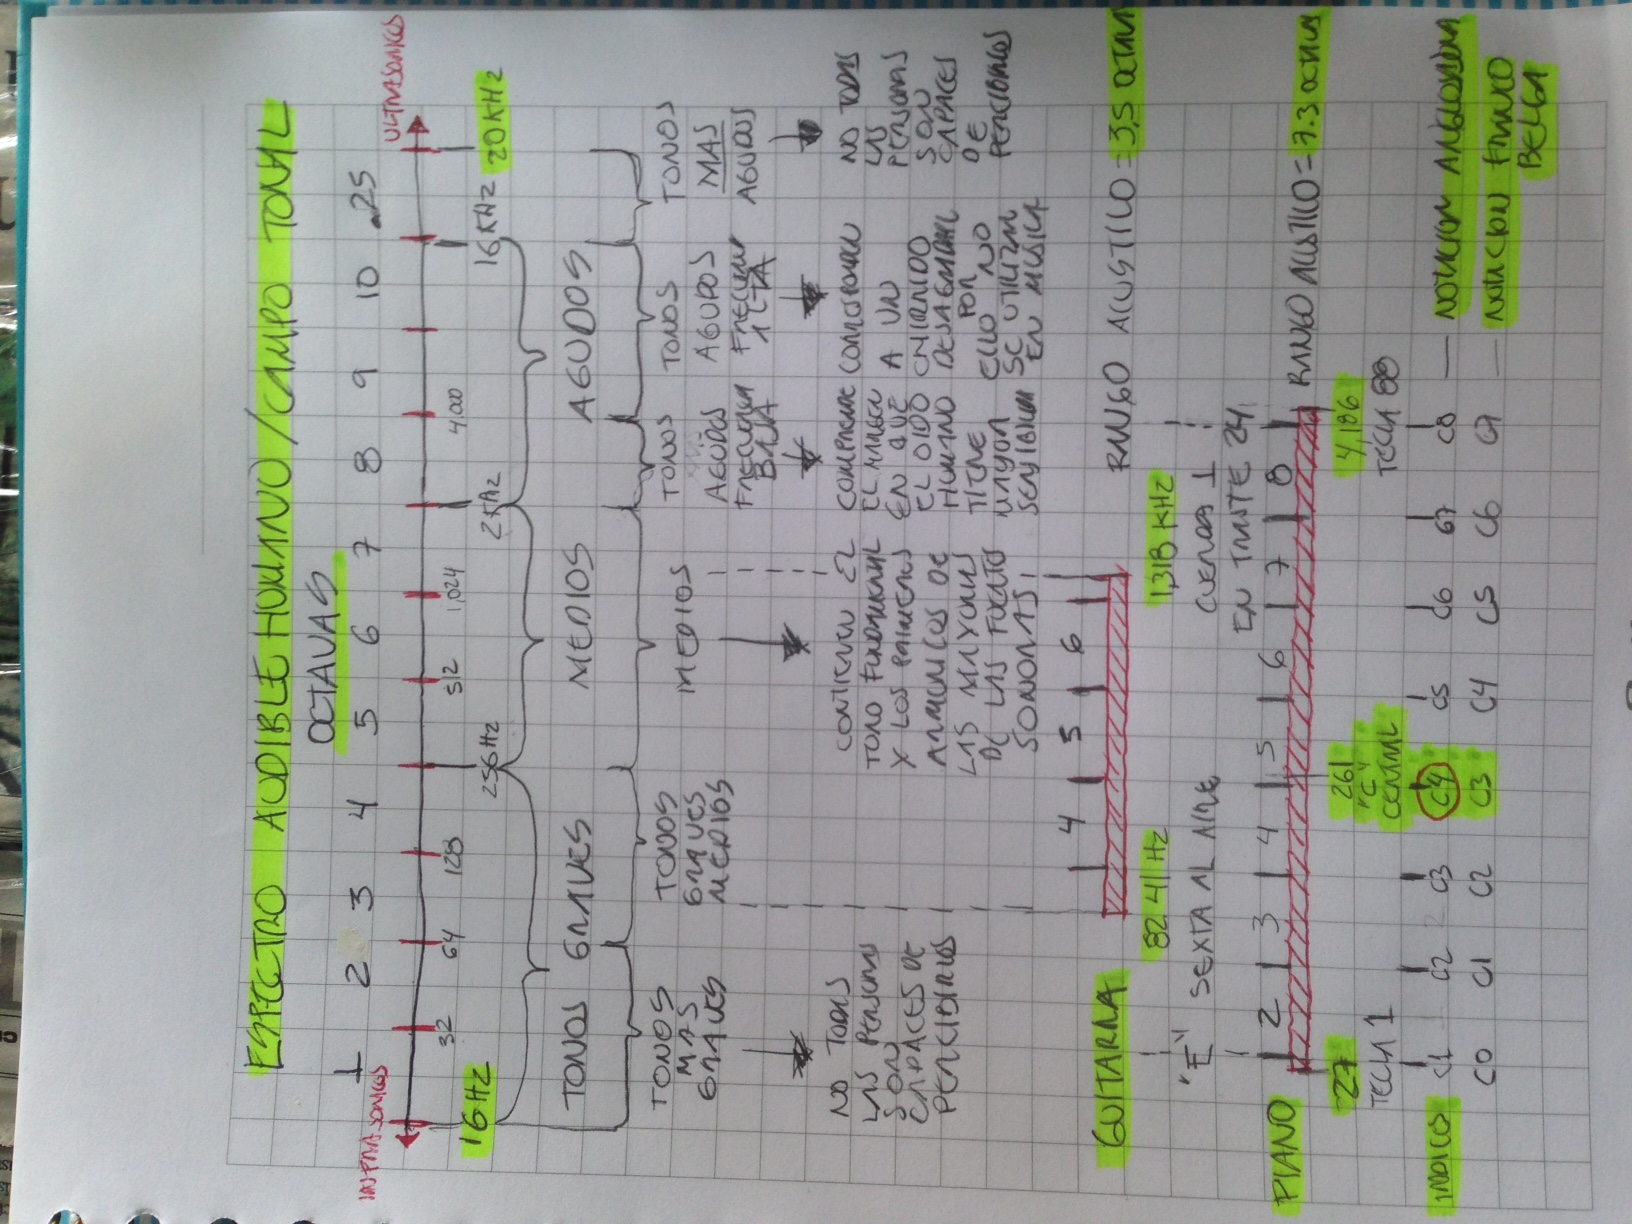 ESPECTRO AUDIBLE HUMANO / CAMPO TONAL
OCTAVAS
1 2 3 4 5 6 7 8 9 10 .25
INFRASONICOS ULTRASONICOS
32 64 128 512 1,024 4,000
16 HZ 256 Hz 2 KHz 16 KHz 20 KHz
TONOS GRAVES MEDIOS AGUDOS
TONOS
MAS
GRAVES
TONOS
GRAVES
MEDIOS
MEDIOS
TONOS
AGUDOS
FRECUENCIA
BAJA
TONOS
AGUDOS
FRECUENCIA
ALTA
TONOS
MAS
AGUDOS
NO TODAS
LAS PERSONAS
SON
CAPACES DE
PERCIBIRLOS
CONTIENEN EL
TONO FUNDAMENTAL
Y LOS PRIMEROS
ARMONICOS DE
LAS MAYORIAS
DE LAS FUENTES
SONORAS
COMPRENDE
EL MARGEN
EN QUE
EL OIDO
HUMANO
TIENE
MAYOR
SENSIBILIDAD
CORRESPONDEN
A UN
CHIRRIDO
DESAGRADABLE
POR
ELLO NO
SE UTILIZAN
EN MUSICA
NO TODAS
LAS
PERSONAS
SON
CAPACES
DE
PERCIBIRLOS
GUITARRA 4 5 6 RANGO ACUSTICO = 3,5 OCTAVAS
82.41 HZ 1,318 KHZ
"E" SEXTA AL AIRE CUERDA 1
EN TRASTE 24
PIANO 2 3 4 5 6 7 8 RANGO ACUSTICO = 7.3 OCTAVAS
27 261 4,186
TECLA 1 "C" CENTRAL TECLA 88
INDICES C1 C2 C3 C4 C5 C6 G7 C8 — NOTACION ANGLOSAJONA
C0 C1 C2 C3 C4 C5 C6 C7 — NOTACION FRANCO
BELGA